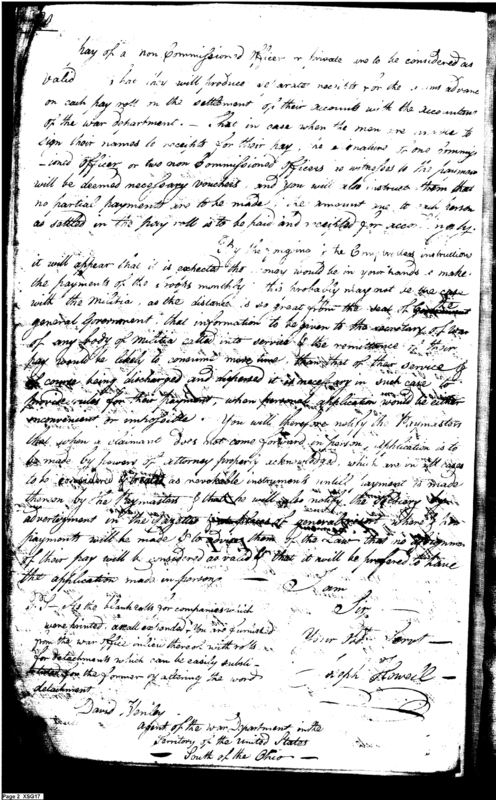 pay of a non Commissioned Officer or private are to be considered as
valid that they will produce separate receipts for the sums advane
on each pay roll in the settlement of their accounts with the accountan
of the war department. – That in case when the men are to
sign their names to receipts for their pay, the of one Commis
sioned officer or two non Commissioned Officers as witnesses to the payment
will be deemed necessary vouchers, and you will also instruct them that
no partial payments are to be made, the amount due to each person
as settled in the pay roll is to be paid and receipted for accordingly.
By the the instructions
it will appear that it is expected the money would be in your hands to make
the payments of the troops monthly this probably may not be the case
with the Militia, as the distance is so great from the seat of
general Government, that information to be given to the secretary of War
of any body of Militia called into service & the remittance of their
pay would be likely to consume more time than that of their service &
of course being discharged and dispersed it is necessary in such case to
provide rules for their payment, when personal application would be either
inconvenient or impossible. You will therefore notify the Paymasters
that when a claimant does not come forward in person, application is to
be made by power of attorney properly acknowledged, which are in all cases
to be considered & treated as revokeable instruments until payment is made
thereon by the Paymasters & that he will also notify the
advertisement in the Gazette general where &
payments will be made & to them of the Law that no
of their pay will be considered as valid & that it will be prefered to have
the application made in person —
I am
Sir,
P.S – As the blank rolls for companies which
were printed are all expended, You are furnished
from the war office in lieu thereof with rolls
for detachments which can be easily substi-
tuted for the former by altering the word
detachment
Your Obt. Servt —
Joseph Howell —
David Henley
agent of the war Department, in the
Territory of the United States
— South of the Ohio —
Page 2 XSG17